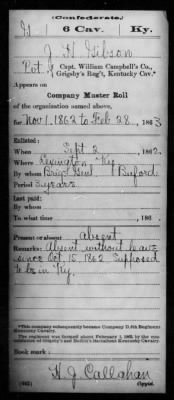 (Confederate.)
G 6 Cav. Ky.
J H Gibson
Pvt, Capt. William Campbell's Co.,
Grigsby's Reg't, Kentucky Cav.*
Appears on
Company Muster Roll
of the organization named above,
for Nov 1, 1862 to Feb 28, 1863
Enlisted:
When Sept 2, 1862
Where Lexington Ky
By whom Brig Genl Buford
Period 3 years
Last paid:
By whom
To what time , 186 .
Present or absent Absent
Remarks: Absent without leave
since Oct. 15, 1862 Supposed
to be in Ky.
*This company subsequently became Company G, 6th Regiment
Kentucky Cavalry.
Book mark:
H. J. Callahan
(642) Copyist.